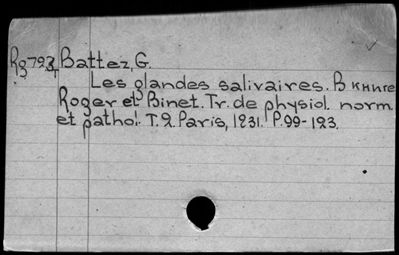 Rg793, Battez, G.
Les glandes salivaires. В книге
Roger et Binet. Tr. de physiol. norm.
et pathol. T.2. Paris, 1931. P.99-123.